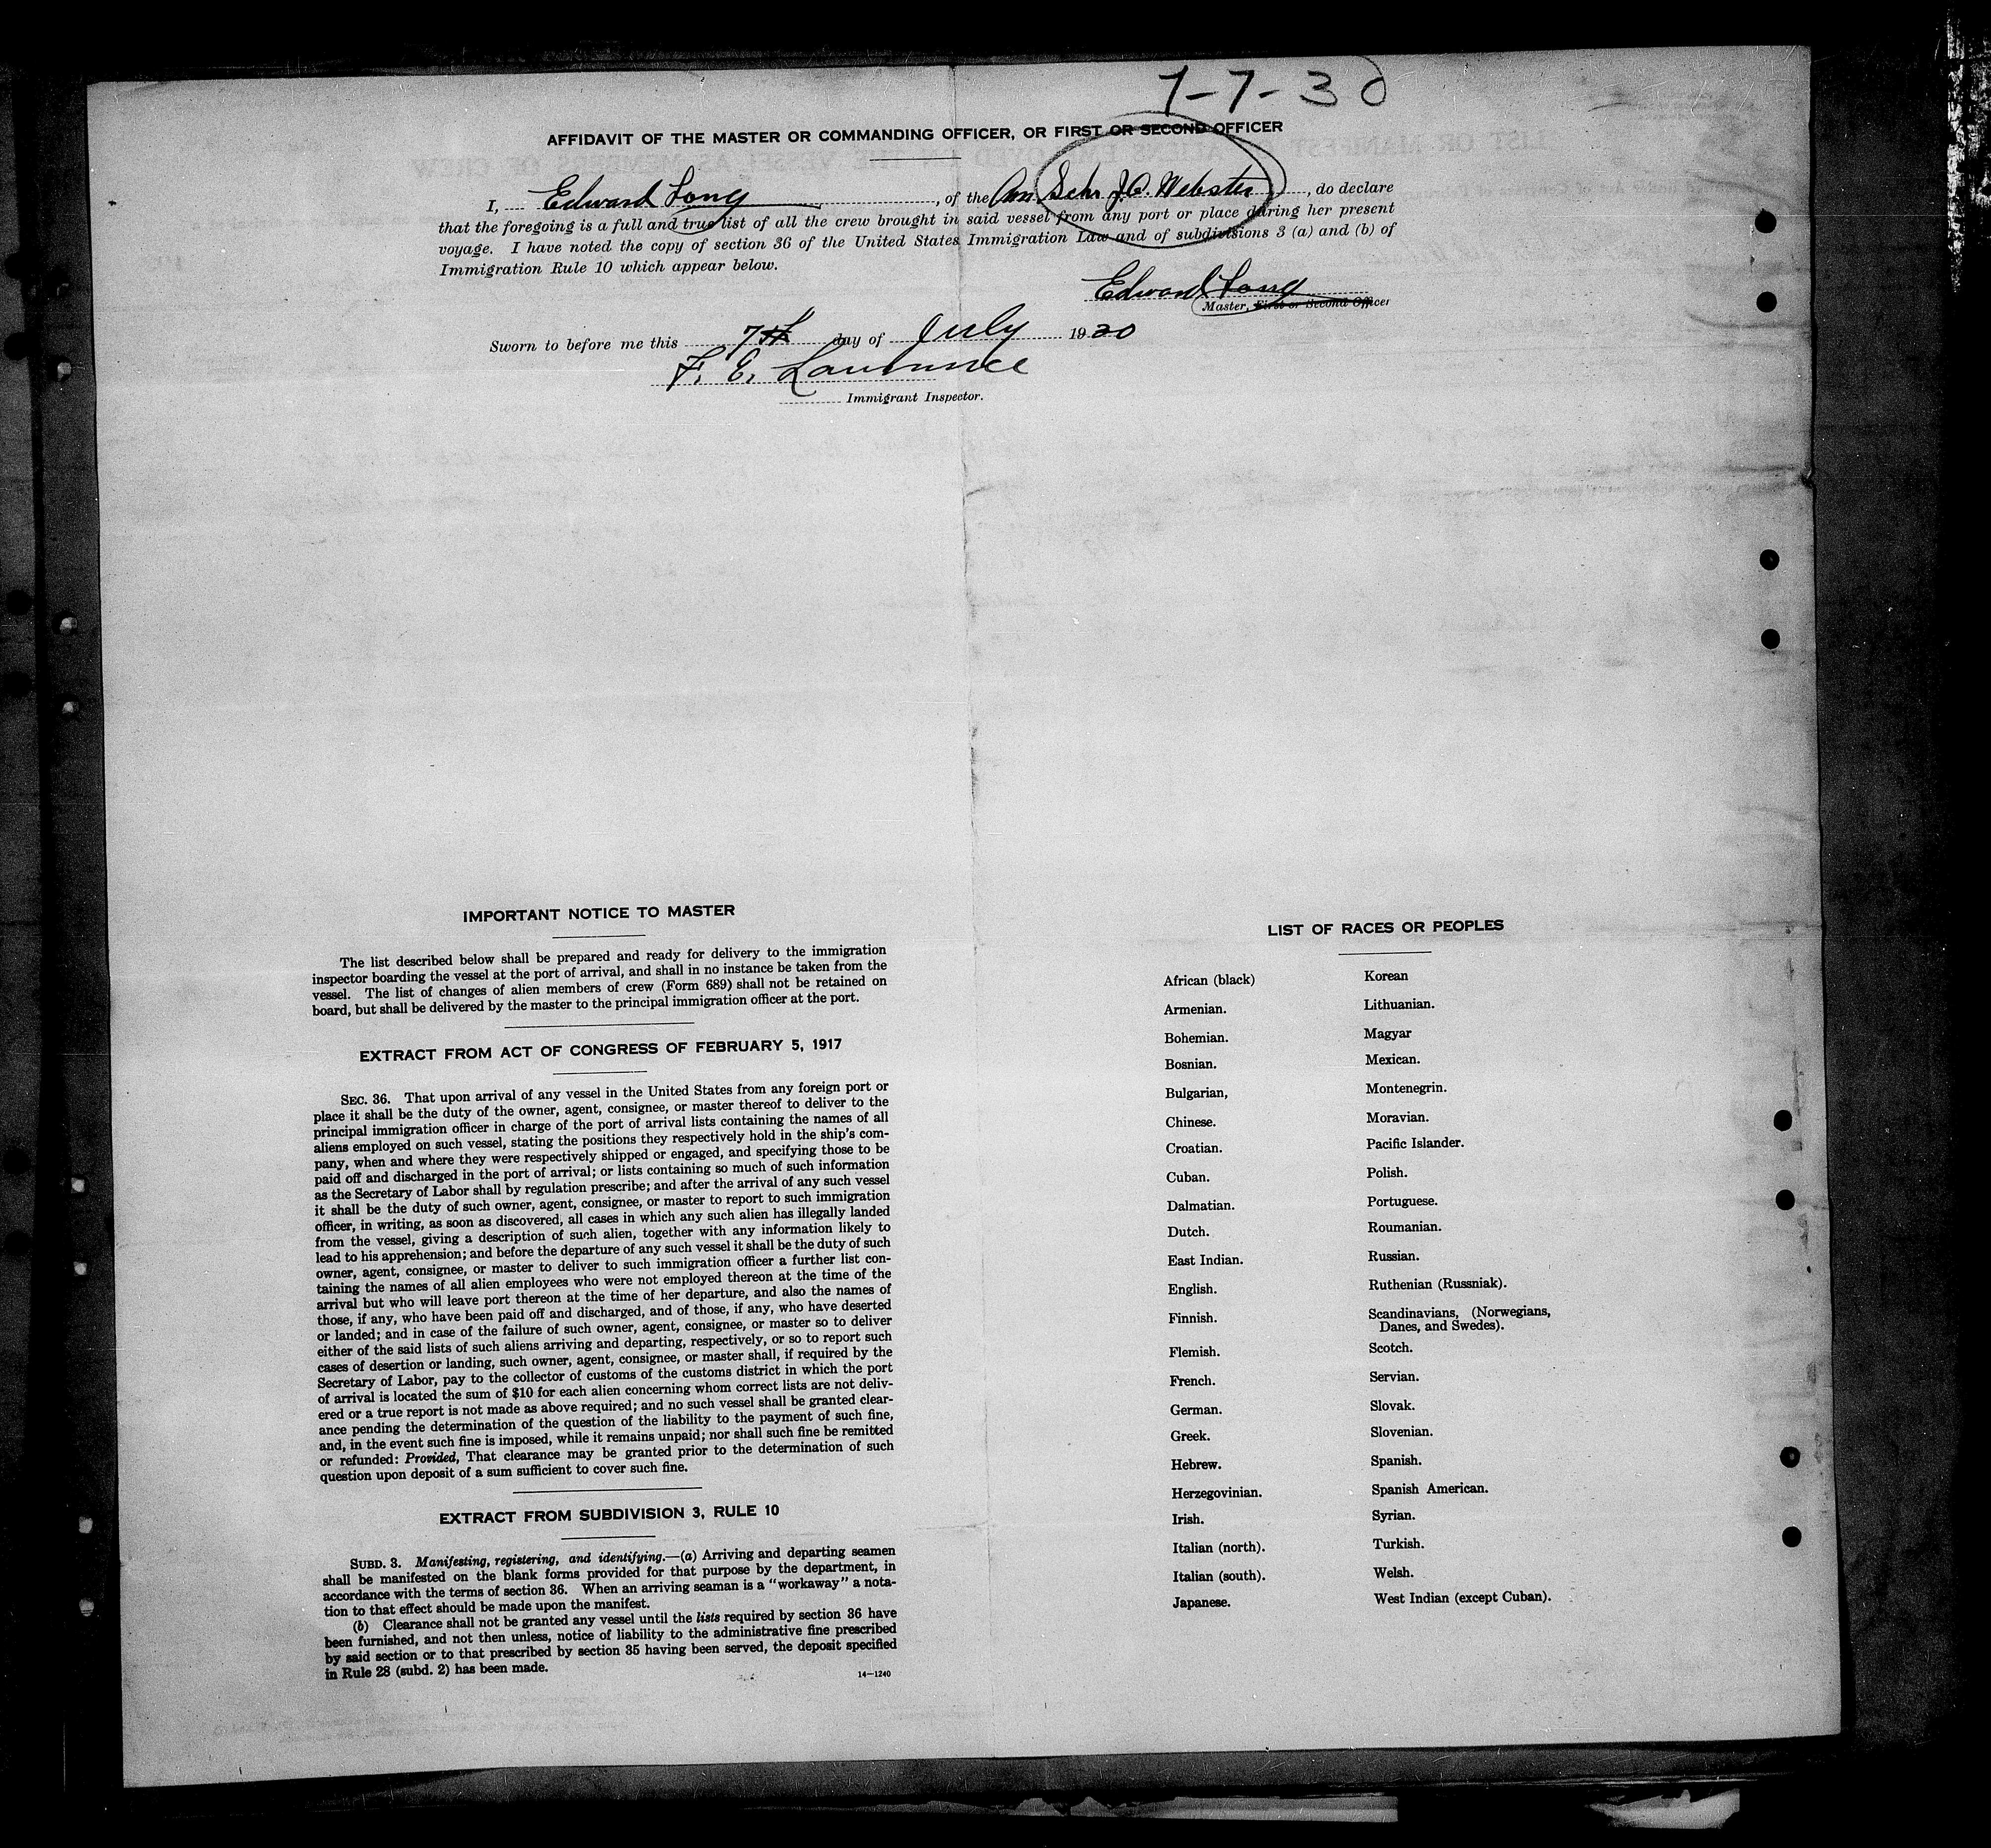 7-7-30
AFFIDAVIT OF THE MASTER OR COMMANDING OFFICER, OR FIRST OR SECOND OFFICER
I, Edward Long, of the Am Schr J.O. Webster, do declare
that the foregoing is a full and true list of all the crew brought in said vessel from any port or place during her present
voyage. I have noted the copy of section 36 of the United States Immigration Law and of subdivisions 3 (a) and (b) of
Immigration Rule 10 which appear below.
Edward Long
Master, First or Second Officer
Sworn to before me this 7th day of July 1930
F. E. Lawrence
Immigrant Inspector.
IMPORTANT NOTICE TO MASTER
The list described below shall be prepared and ready for delivery to the immigration
inspector boarding the vessel at the port of arrival, and shall in no instance be taken from the
vessel. The list of changes of alien members of crew (Form 689) shall not be retained on
board, but shall be delivered by the master to the principal immigration officer at the port.
EXTRACT FROM ACT OF CONGRESS OF FEBRUARY 5, 1917
SEC. 36. That upon arrival of any vessel in the United States from any foreign port or
place it shall be the duty of the owner, agent, consignee, or master thereof to deliver to the
principal immigration officer in charge of the port of arrival lists containing the names of all
aliens employed on such vessel, stating the positions they respectively hold in the ship's com-
pany, when and where they were respectively shipped or engaged, and specifying those to be
paid off and discharged in the port of arrival; or lists containing so much of such information
as the Secretary of Labor shall by regulation prescribe; and after the arrival of any such vessel
it shall be the duty of such owner, agent, consignee, or master to report to such immigration
officer, in writing, as soon as discovered, all cases in which any such alien has illegally landed
from the vessel, giving a description of such alien, together with any information likely to
lead to his apprehension; and before the departure of any such vessel it shall be the duty of such
owner, agent, consignee, or master to deliver to such immigration officer a further list con-
taining the names of all alien employees who were not employed thereon at the time of the
arrival but who will leave port thereon at the time of her departure, and also the names of
those, if any, who have been paid off and discharged, and of those, if any, who have deserted
or landed; and in case of the failure of such owner, agent, consignee, or master so to deliver
either of the said lists of such aliens arriving and departing, respectively, or so to report such
cases of desertion or landing, such owner, agent, consignee, or master shall, if required by the
Secretary of Labor, pay to the collector of customs of the customs district in which the port
of arrival is located the sum of $10 for each alien concerning whom correct lists are not deliv-
ered or a true report is not made as above required; and no such vessel shall be granted clear-
ance pending the determination of the question of the liability to the payment of such fine,
and, in the event such fine is imposed, while it remains unpaid; nor shall such fine be remitted
or refunded: Provided, That clearance may be granted prior to the determination of such
question upon deposit of a sum sufficient to cover such fine.
EXTRACT FROM SUBDIVISION 3, RULE 10
SUBD. 3. Manifesting, registering, and identifying.—(a) Arriving and departing seamen
shall be manifested on the blank forms provided for that purpose by the department, in
accordance with the terms of section 36. When an arriving seaman is a "workaway" a nota-
tion to that effect should be made upon the manifest.
(b) Clearance shall not be granted any vessel until the lists required by section 36 have
been furnished, and not then unless, notice of liability to the administrative fine prescribed
by said section or to that prescribed by section 35 having been served, the deposit specified
in Rule 28 (subd. 2) has been made.
14—1240
LIST OF RACES OR PEOPLES
African (black)
Armenian.
Bohemian.
Bosnian.
Bulgarian,
Chinese.
Croatian.
Cuban.
Dalmatian.
Dutch.
East Indian.
English.
Finnish.
Flemish.
French.
German.
Greek.
Hebrew.
Herzegovinian.
Irish.
Italian (north).
Italian (south).
Japanese.
Korean
Lithuanian.
Magyar
Mexican.
Montenegrin.
Moravian.
Pacific Islander.
Polish.
Portuguese.
Roumanian.
Russian.
Ruthenian (Russniak).
Scandinavians, (Norwegians,
Danes, and Swedes).
Scotch.
Servian.
Slovak.
Slovenian.
Spanish.
Spanish American.
Syrian.
Turkish.
Welsh.
West Indian (except Cuban).